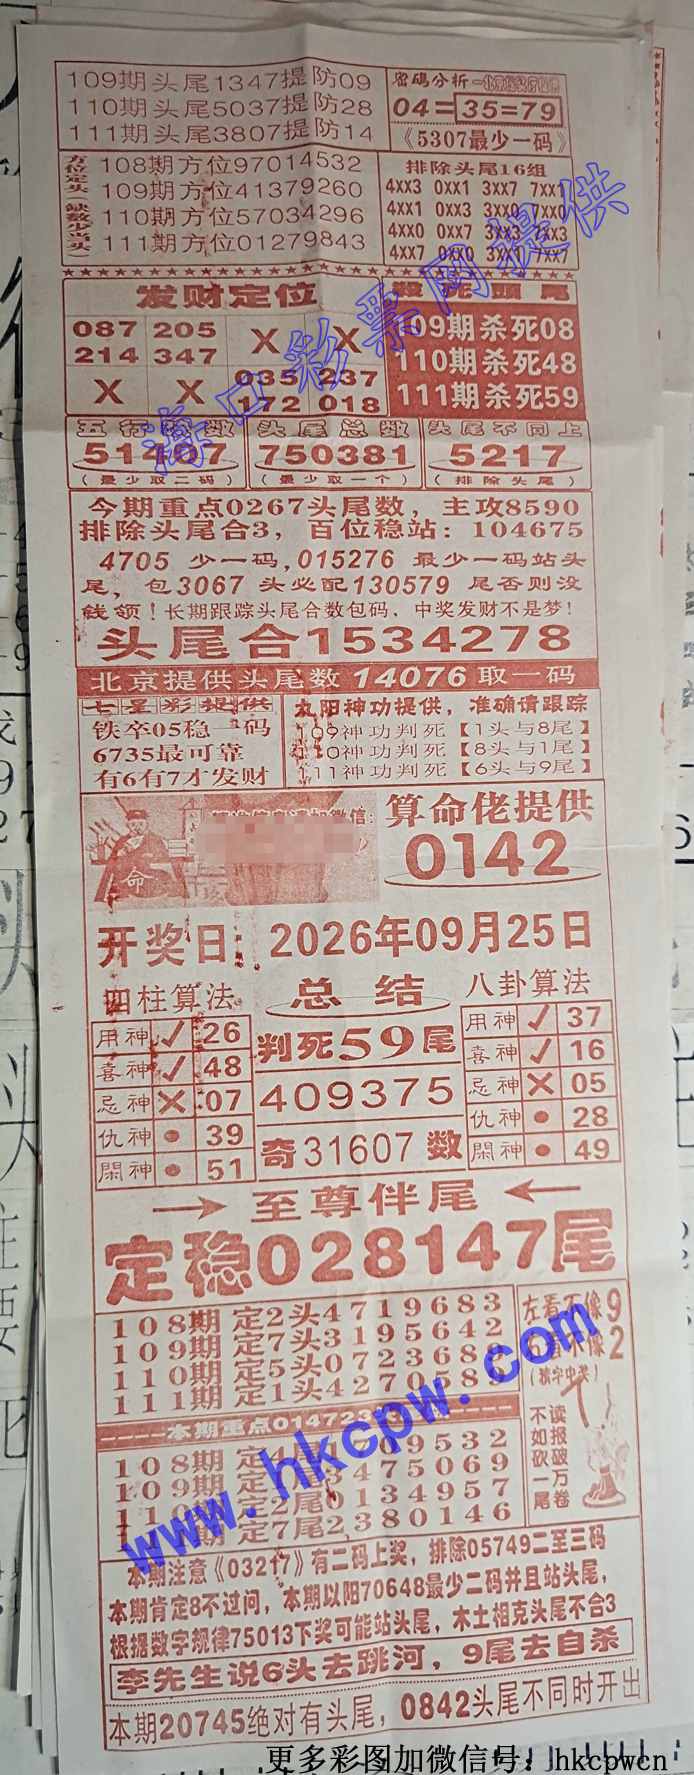 109期头尾1347提防09
110期头尾5037提防28
111期头尾3807提防14
密码分析
04=35=79
《5307最少一码》
方位定头（缺数少当头）
108期方位97014532
109期方位41379260
110期方位57034296
111期方位01279843
排除头尾16组
4xx3 0xx1 3xx7 7xx1
4xx1 0xx3 3xx0 7xx0
4xx0 0xx7 3xx3 7xx3
4xx7 0xx0 3xx1 7xx7
发财定位
087 205 X X
214 347
X X 035 237
172 018
杀死头尾
109期杀死08
110期杀死48
111期杀死59
五行 数
51467
（最少取二码）
头尾总数
750381
（最少取一个）
头尾不同上
5217
（排除头尾）
今期重点0267头尾数，主攻8590
排除头尾合3，百位稳站：104675
4705 少一码,015276 最少一码站头
尾，包3067 头必配130579 尾否则没
钱领！长期跟踪头尾合数包码，中奖发财不是梦！
头尾合1534278
北京提供头尾数14076取一码
七星彩提供
铁卒05稳一码
6735最可靠
有6有7才发财
九阳神功提供，准确请跟踪
109神功判死【1头与8尾】
110神功判死【8头与1尾】
111神功判死【6头与9尾】
命
算命佬提供
0142
开奖日 2026年09月25日
四柱算法
用神 ✓ 26
喜神 ✓ 48
忌神 X 07
仇神 • 39
閑神 • 51
总结
判死59尾
409375
奇31607数
八卦算法
用神 ✓ 37
喜神 ✓ 16
忌神 X 05
仇神 • 28
閑神 • 49
至尊伴尾
定稳028147尾
108期定2头4719683
109期定7头3195642
110期定5头0723689
111期定1头4270589
左看不像9
右看不像2
（猜字中奖）
读报破万卷
不如砍一尾
本期重点01472
本期注意《03217》有二码上奖，排除05749二至三码
本期肯定8不过问，本期以阳70648最少二码并且站头尾，
根据数字规律75013下奖可能站头尾，木土相克头尾不合3
李先生说6头去跳河，9尾去自杀
本期20745绝对有头尾，0842头尾不同时开出
海口彩票网提供
www.hkcpw.com
更多彩图加微信号：hkcpwcn